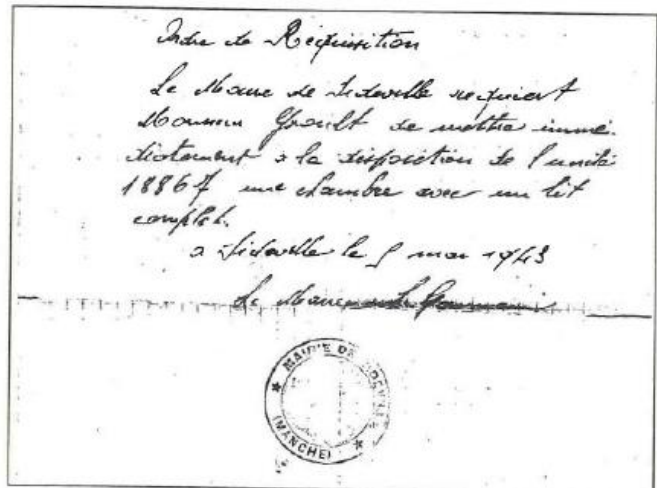 Ordre de Réquisition
Le Maire de Sideville requiert
Monsieur Groult de mettre immé-
diatement à la disposition de l'unité
18867 une chambre avec un lit
complet.
a Sideville le 5 mai 1943
Le Maire
MAIRIE DE SIDEVILLE
(MANCHE)